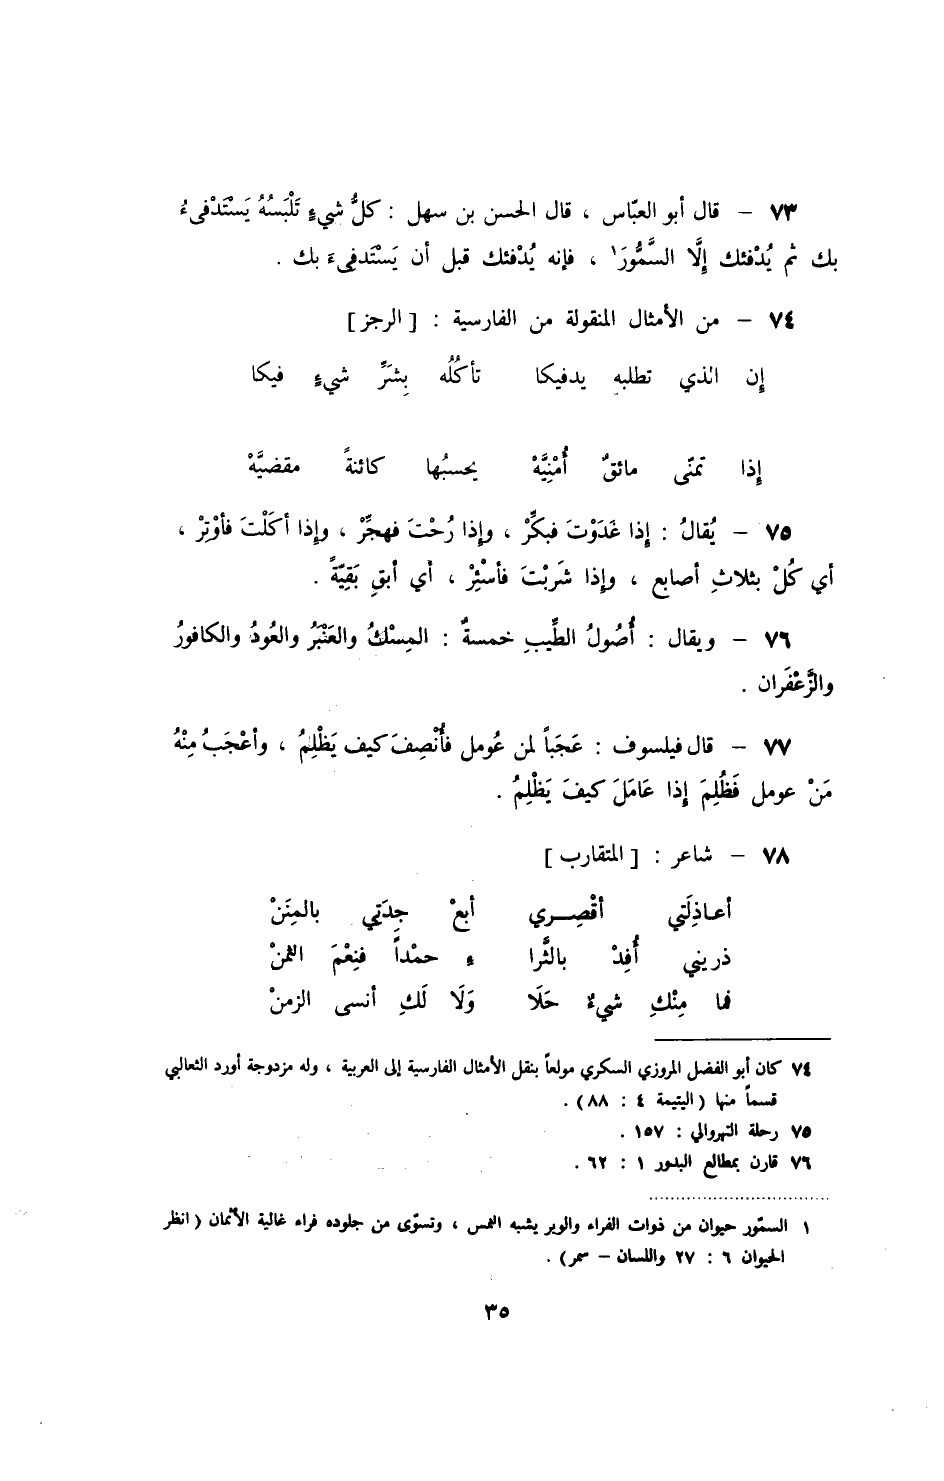 ٧٣ – قال أبو العبّاس ، قال الحسن بن سهل : كلُّ شيءٍ تَلْبَسُهُ يَسْتَدْفىءُ
بك ثم يُدْفئك إلَّا السَّمُّورَ١ ، فإنه يُدْفئك قبل أن يَسْتَدفىءَ بك .
٧٤ – من الأمثال المنقولة من الفارسية : [ الرجز ]
إن الذي تطلبه يدفيكا تأكُلُه بِشَرِّ شيءٍ فيكا
إذا تمنّى مائقٌ أُمْنِيَّهْ يحسبُها كائنةً مقضيَّهْ
٧٥ – يُقالُ : إذا غَدَوْتَ فبكِّرْ ، وإذا رُحْتَ فهجِّرْ ، وإذا أكَلْتَ فأوْتِرْ ،
أي كُلْ بثلاثِ أصابع ، وإذا شَرَبْتَ فأسْئِرْ ، أي أبقِ بَقِيّةً .
٧٦ – ويقال : أُصُولُ الطِّيبِ خمسةٌ : المِسْكُ والعَنْبَرُ والعُودُ والكافورُ
والزَّعْفَران .
٧٧ – قال فيلسوف : عَجَباً لمن عُومل فأُنْصِفَ كيف يَظْلِمُ ، وأعْجَبُ مِنْهُ
مَنْ عومل فَظُلِمَ إذا عَامَلَ كيفَ يَظْلِمُ .
٧٨ – شاعر : [ المتقارب ]
أعاذِلَتي أقْصِري أبعْ جِدَتِي بالمِنَنْ
ذريني أُفِدْ بالثَّرا ءِ حمْداً فنِعْمَ الثمنْ
فما مِنْكِ شيءٌ حَلَا وَلَا لَكِ أنسى الزمنْ
٧٤ كان أبو الفضل المروزي السكري مولعاً بنقل الأمثال الفارسية إلى العربية ، وله مزدوجة أورد الثعالبي
قسماً منها ( اليتيمة ٤ : ٨٨ ) .
٧٥ رحلة النهروالي : ١٥٧ .
٧٦ قارن بمطالع البدور ١ : ٦٢ .
١ السمّور حيوان من ذوات الفراء والوبر يشبه النمس ، وتسوّى من جلوده فراء غالية الأثمان ( انظر
الحيوان ٦ : ٢٧ واللسان – سمر ) .
٣٥